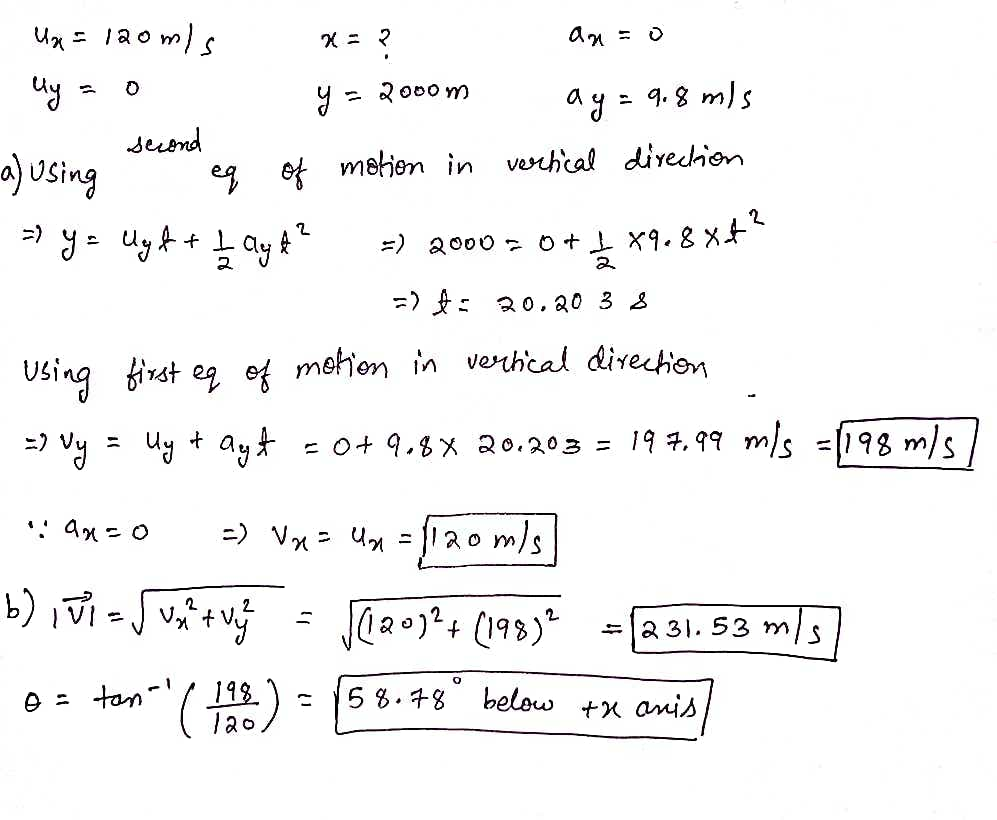 uₓ = 120 m/s x = ? aₓ = 0
u_y = 0 y = 2000 m a_y = 9.8 m/s
a) Using second eq of motion in vertical direction
=> y = u_y t + 1/2 a_y t² => 2000 = 0 + 1/2 × 9.8 × t²
=> t = 20.203 s
Using first eq of motion in vertical direction
=> v_y = u_y + a_y t = 0 + 9.8 × 20.203 = 197.99 m/s = 198 m/s
∵ aₓ = 0 => vₓ = uₓ = 120 m/s
b) |v⃗| = √(vₓ² + v_y²) = √((120)² + (198)²) = 231.53 m/s
θ = tan⁻¹(198/120) = 58.78° below +x anis